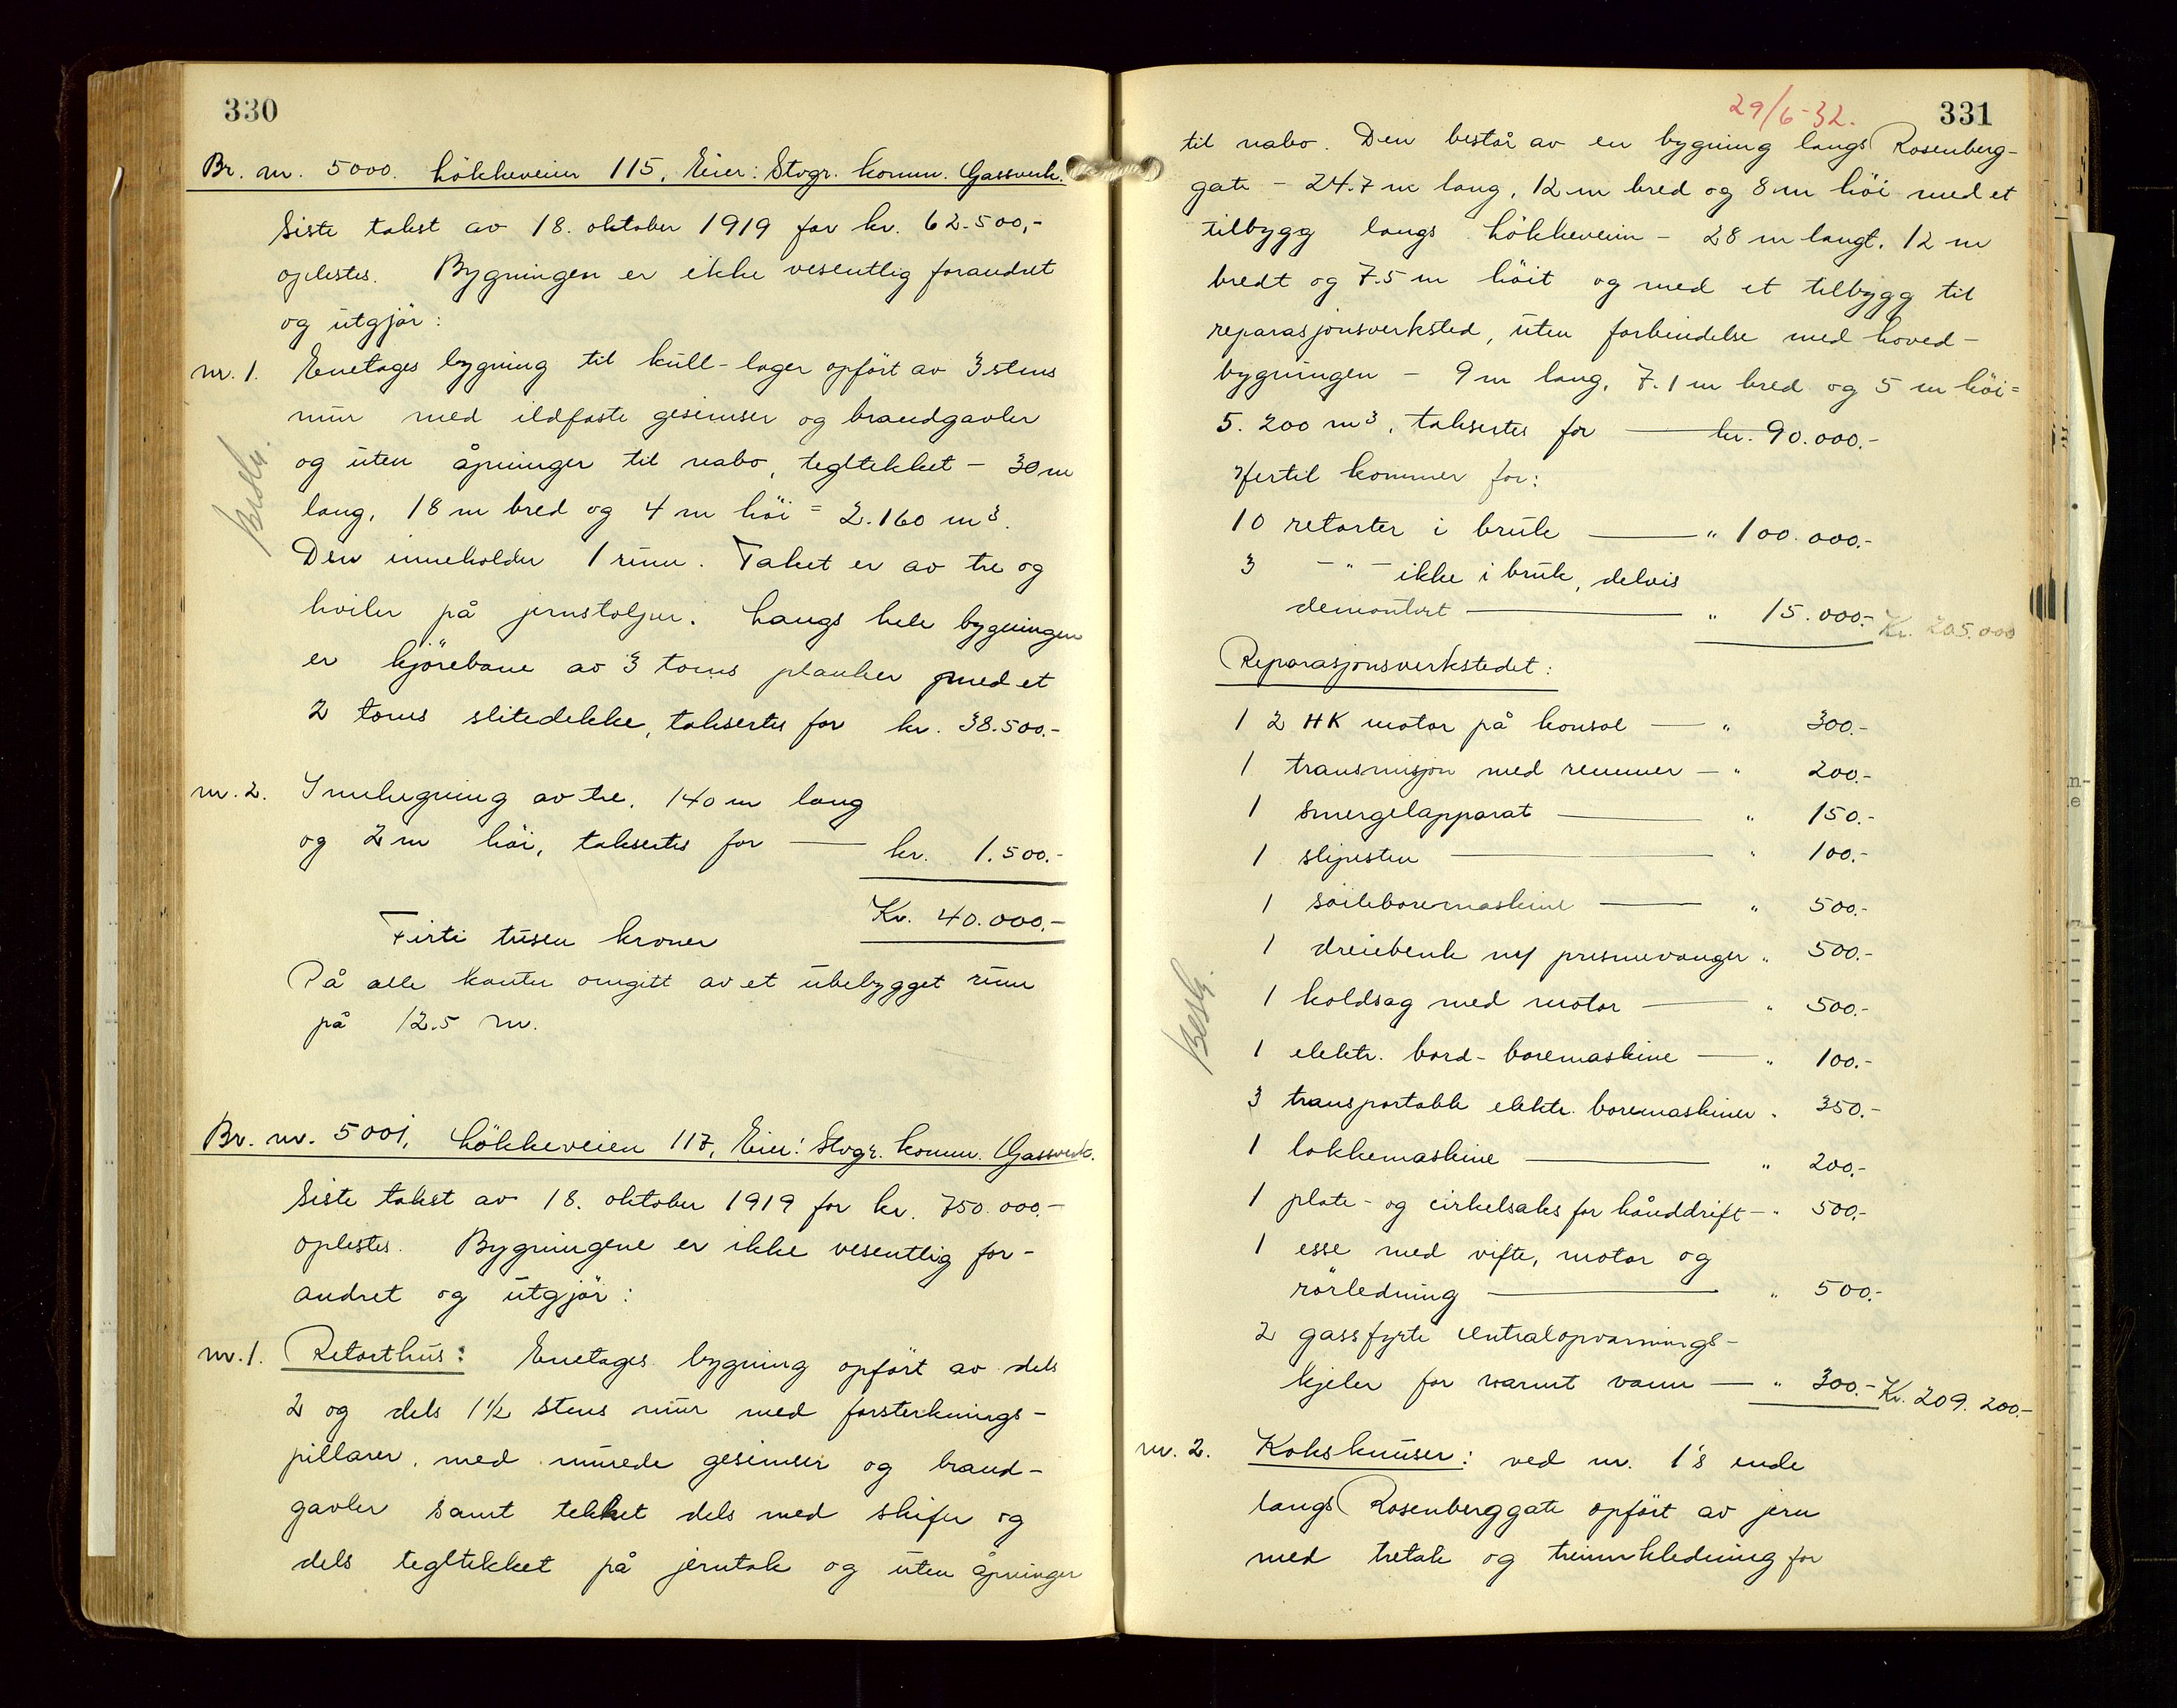 330
Br. nr. 5000. Lökkeveien 115, Eier: Stvgr. komm. Gassverk.
Siste takst av 18. oktober 1919 for kr. 62.500,-
oplestes. Bygningen er ikke vesentlig forandret
og utgjör:
nr. 1. Enetages bygning til kull-lager opfört av 3 stens
mur med ildfaste gesimser og brandgavler
og uten åpninger til nabo, tegltekket - 30 m
lang, 18 m bred og 4 m höi = 2.160 m³.
Den inneholder 1 rum. Taket er av tre og
hviler på jernstolper. Langs hele bygningen
er kjörebane av 3 toms planker med et
2 toms slitedekke, taksertes for kr. 38.500.-
nr. 2. Innhegning av tre, 140 m lang
og 2 m höi, taksertes for — kr. 1.500.-
Kr. 40.000.-
Firti tusen kroner
På alle kanter omgitt av et ubebygget rum
på 12.5 m.
Beskr.
Br. nr. 5001, Lökkeveien 117, Eier: Stvgr. komm. Gassverk.
Siste takst av 18. oktober 1919 for kr. 750.000.-
oplestes. Bygningene er ikke vesentlig for-
andret og utgjör:
nr. 1. Retorthus: Enetages bygning opfört av dels
2 og dels 1½ stens mur med forsterknings-
pillarer, med murede gesimser og brand-
gavler samt tekket dels med skifer og
dels tegltekket på jerntak og uten åpninger
29/6-32.
331
til nabo. Den består av en bygning langs Rosenberg-
gate - 24.7 m lang, 12 m bred og 8 m höi med et
tilbygg langs Lökkeveien - 28 m langt, 12 m
bredt og 7.5 m höit og med et tilbygg til
reparasjonsverksted, uten forbindelse med hoved-
bygningen - 9 m lang, 7.1 m bred og 5 m höi =
5.200 m³, taksertes for — kr. 90.000.-
Hertil kommer for:
10 retorter i bruk — " 100.000.-
3 - " - ikke i bruk, delvis
demontert — " 15.000.- Kr. 205.000
Reparasjonsverkstedet:
1 2 HK motor på konsol — " 300.-
1 transmisjon med remmer — " 200.-
1 smergelapparat — " 150.-
1 slipesten — " 100.-
1 söileboremaskine — " 500.-
1 dreiebenk m/ prismevanger " 500.-
1 koldsag med motor — " 500.-
1 elektr. bord-boremaskine — " 100.-
3 transportable elektr. boremaskiner " 350.-
1 lokkemaskine — " 200.-
1 plate- og cirkelsaks for hånddrift — " 500.-
1 esse med vifte, motor og
rörledning — " 500.-
2 gassfyrte centralopvarmings-
kjeler for varmt vann — " 300.- Kr. 209.200.-
Beskr.
nr. 2. Koksknuser: ved nr. 1's ende
langs Rosenberggate opfört av jern
med tretak og treinnkledning for